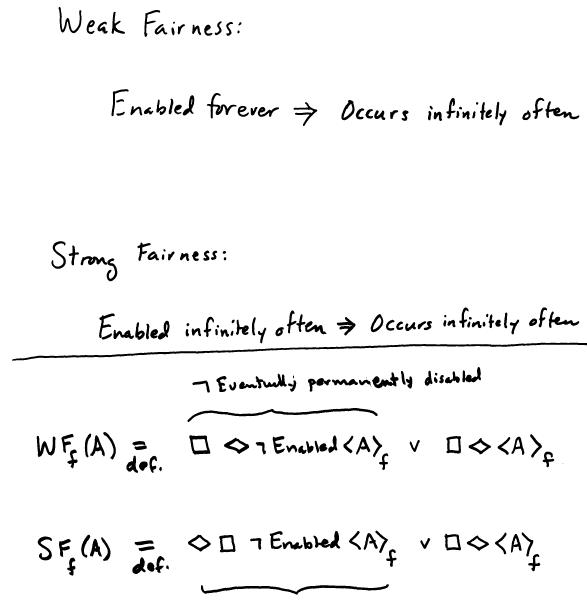 Weak Fairness:
Enabled forever ⇒ Occurs infinitely often
Strong Fairness:
Enabled infinitely often ⇒ Occurs infinitely often
¬ Eventually permanently disabled
WF_f(A) =def. □ ◇ ¬ Enabled <A>_f ∨ □ ◇ <A>_f
SF_f(A) =def. ◇ □ ¬ Enabled <A>_f ∨ □ ◇ <A>_f